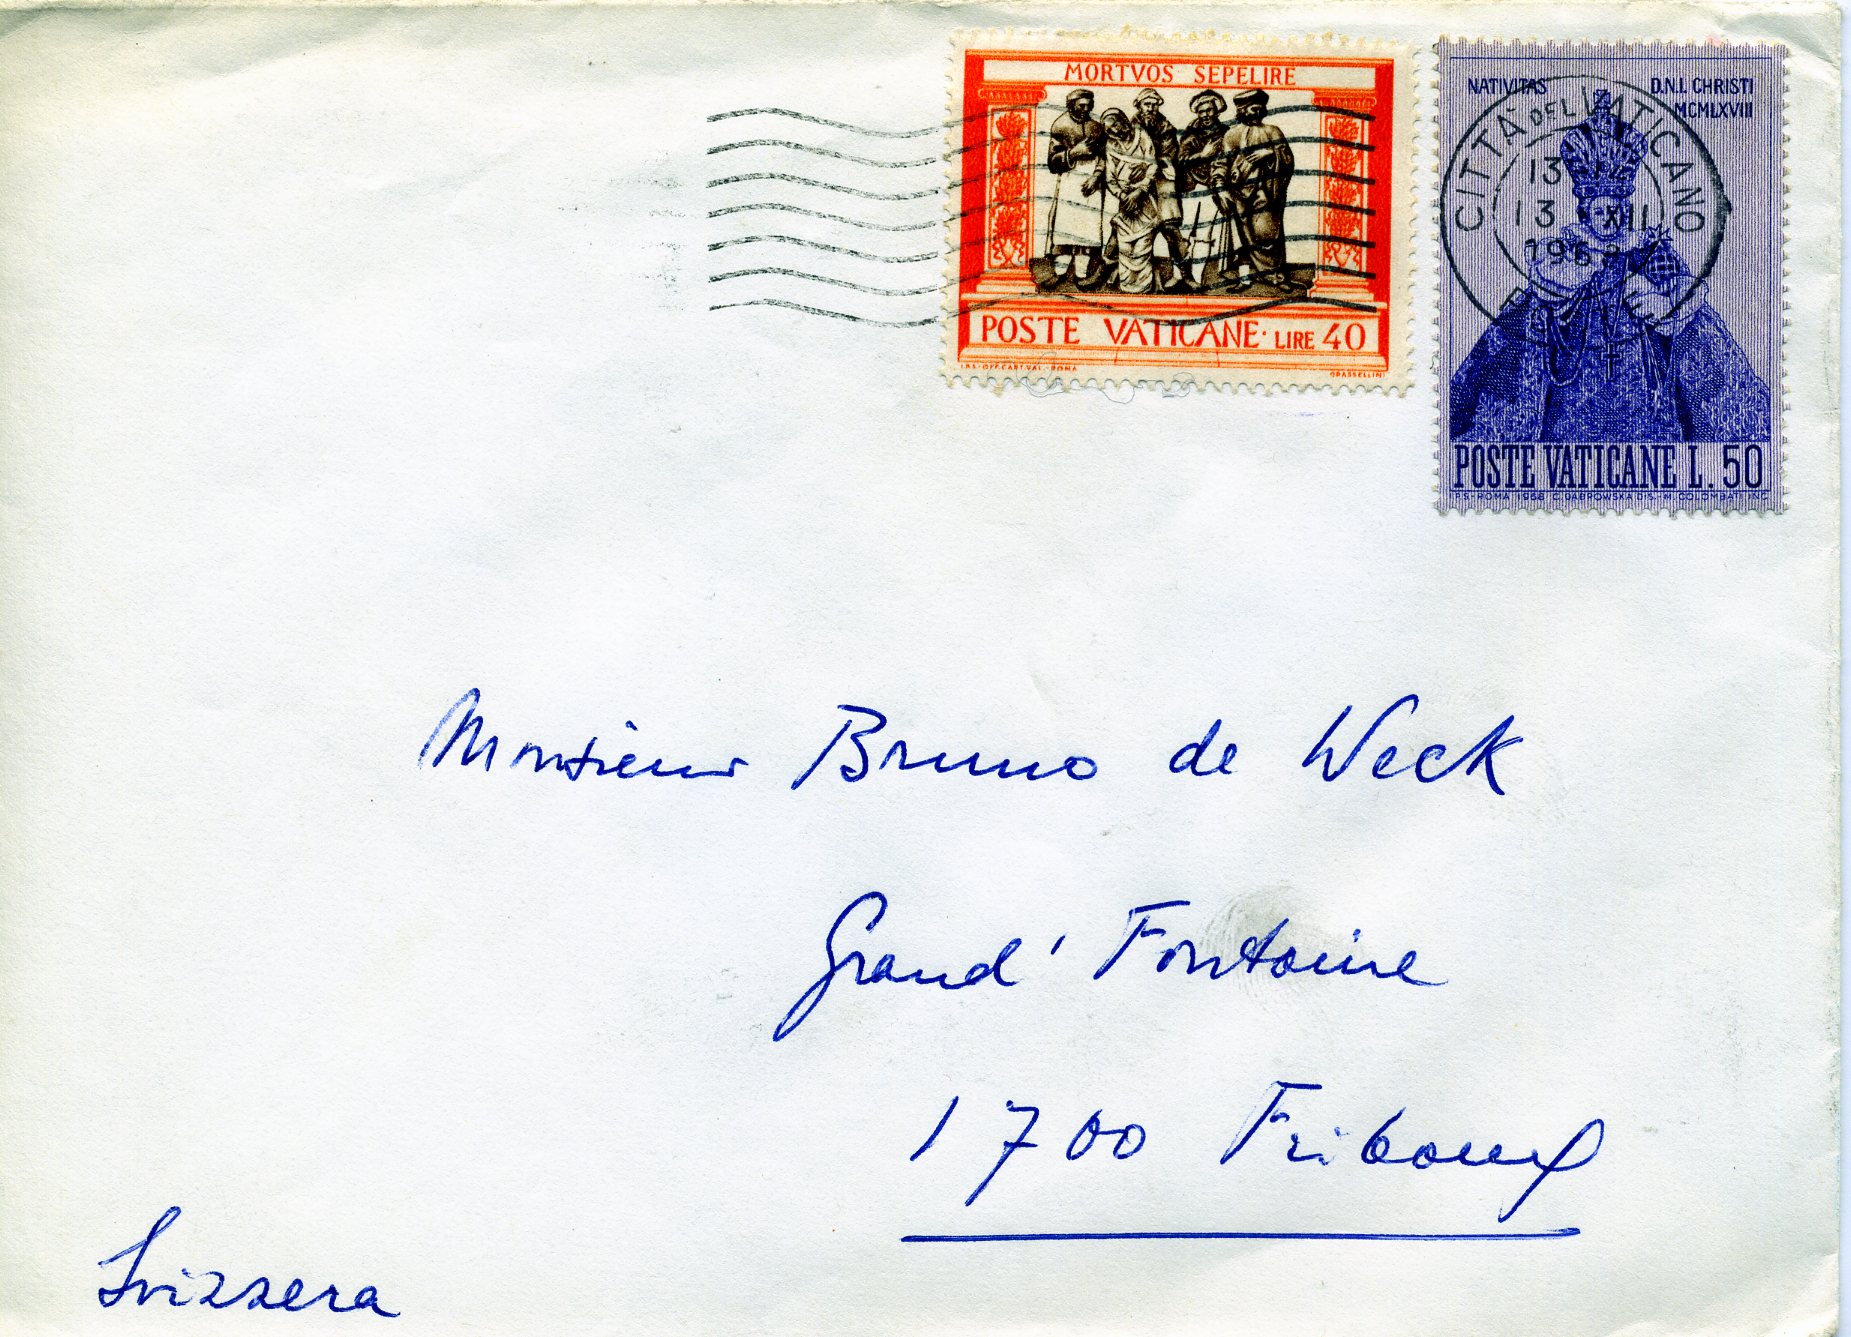 MORTVOS SEPELIRE
POSTE VATICANE · LIRE 40
I.P.S.-OFF.CART.VAL.-ROMA GRASSELLINI
NATIVITAS D.N.I. CHRISTI
MCMLXVIII
CITTÀ DEL VATICANO
13
13 XII
1968
POSTE VATICANE L. 50
I.P.S.-ROMA 1968 C. DABROWSKA DIS.-M. COLOMBATI INC.
Monsieur Bruno de Weck
Grand' Fontaine
1700 Fribourg
Svizzera